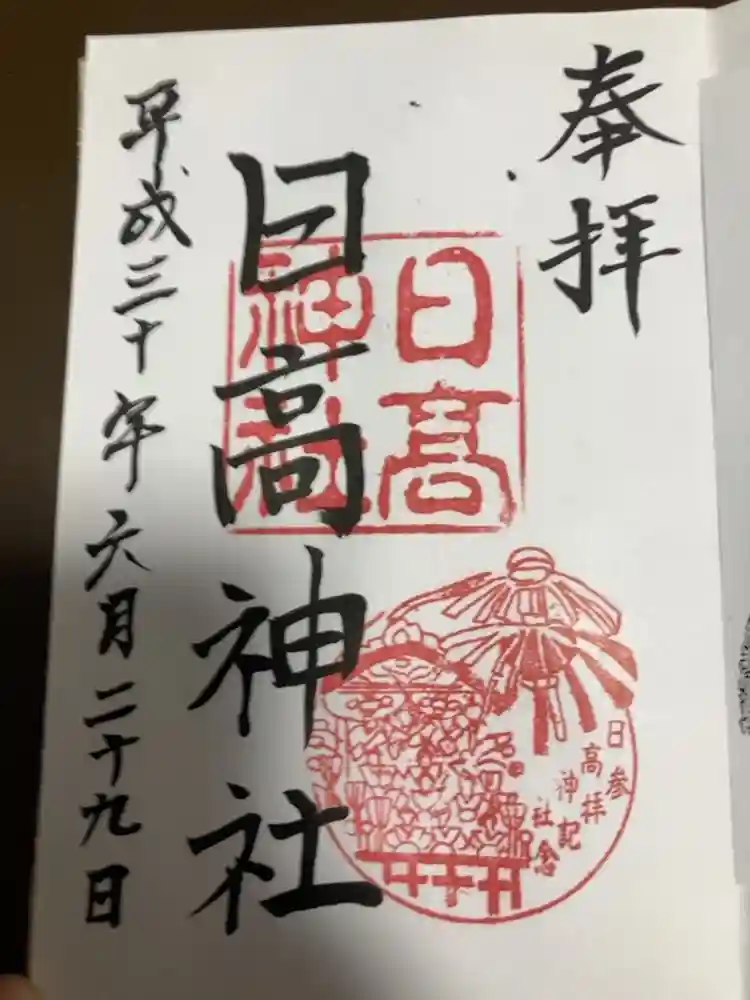 奉拝
日高神社
平成三十年六月二十九日
日高
神社
参拝記念
日高神社